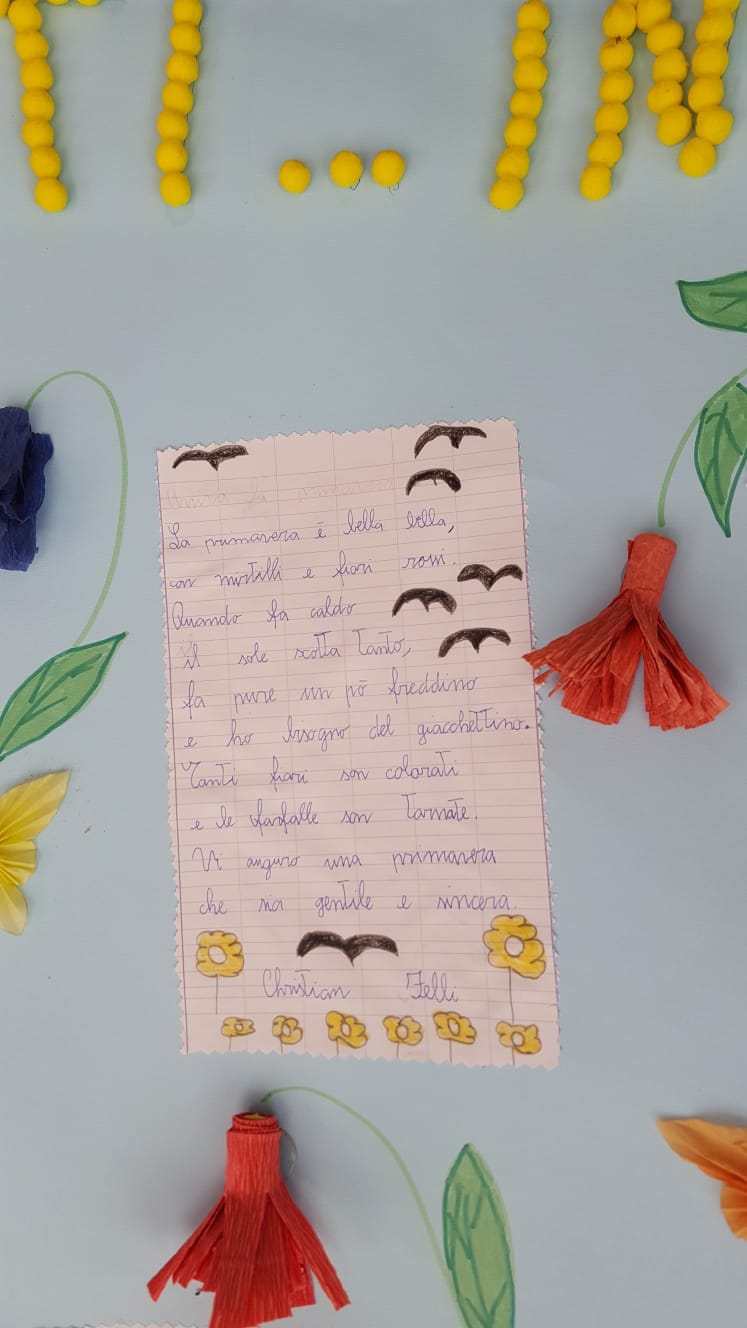 TI ... IN
la primavera
La primavera è bella bella,
con mirtilli e fiori rossi.
Quando fa caldo
il sole scotta tanto,
fa pure un pò freddino
e ho bisogno del giacchettino.
Tanti fiori son colorati
e le farfalle son tornate.
Vi auguro una primavera
che sia gentile e sincera.
Christian Felli